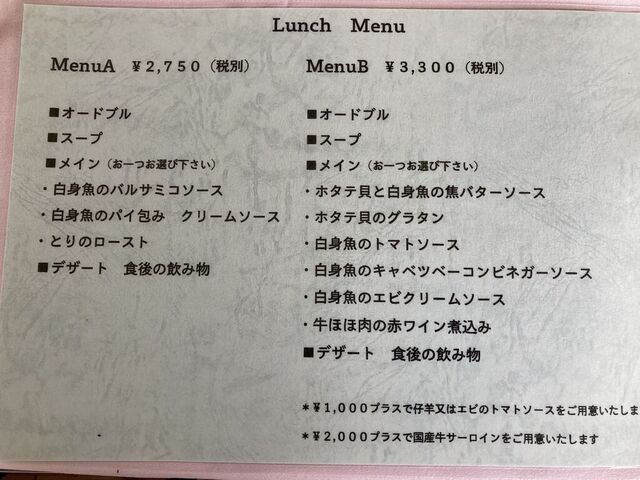 Lunch Menu
MenuA ￥２,７５０（税別）
■オードブル
■スープ
■メイン（お一つお選び下さい）
・白身魚のバルサミコソース
・白身魚のパイ包み　クリームソース
・とりのロースト
■デザート　食後の飲み物
MenuB ￥３,３００（税別）
■オードブル
■スープ
■メイン（お一つお選び下さい）
・ホタテ貝と白身魚の焦バターソース
・ホタテ貝のグラタン
・白身魚のトマトソース
・白身魚のキャベツベーコンビネガーソース
・白身魚のエビクリームソース
・牛ほほ肉の赤ワイン煮込み
■デザート　食後の飲み物
＊￥１,０００プラスで仔羊又はエビのトマトソースをご用意いたしま
＊￥２,０００プラスで国産牛サーロインをご用意いたします